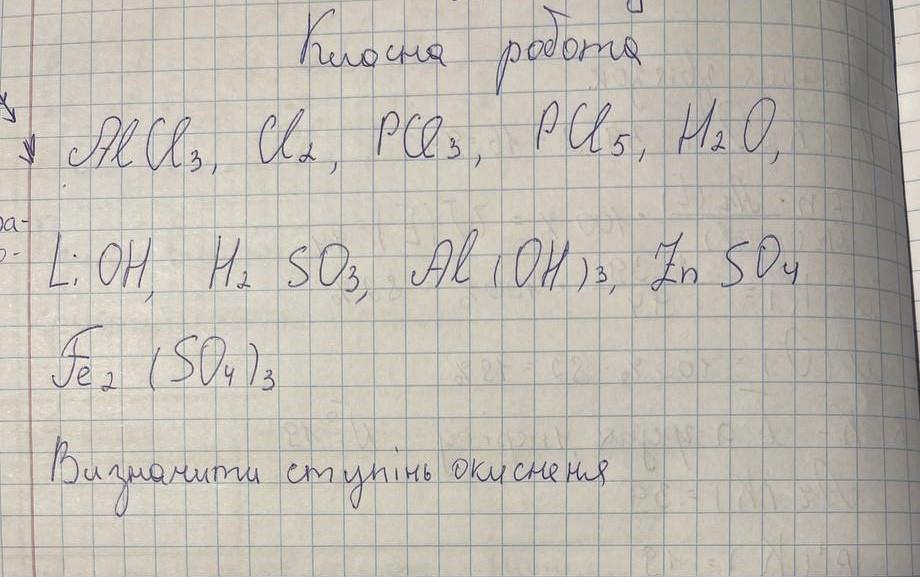 Класна робота
AlCl₃, Cl₂, PCl₃, PCl₅, H₂O,
LiOH, H₂SO₃, Al(OH)₃, ZnSO₄
Fe₂(SO₄)₃
Визначити ступінь окиснення